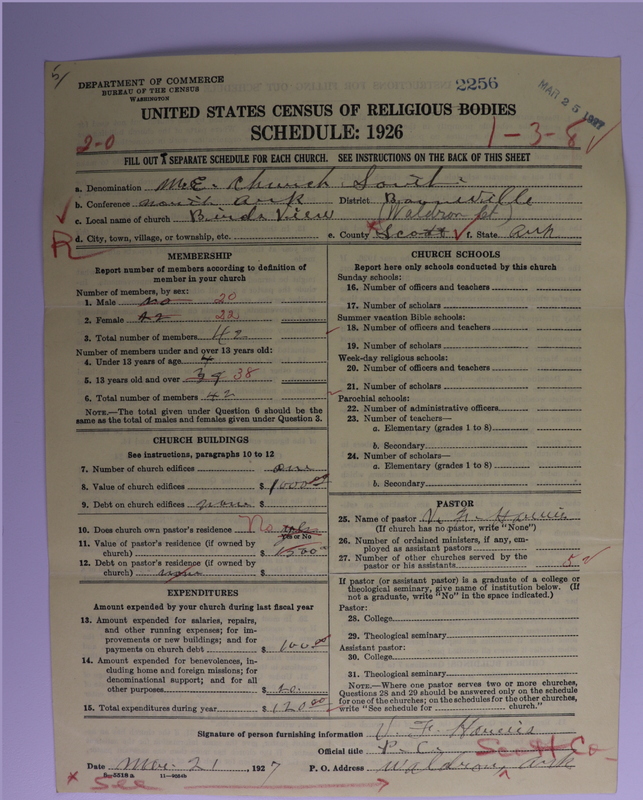 5/
DEPARTMENT OF COMMERCE
BUREAU OF THE CENSUS
WASHINGTON
2256
MAR 25 1927
UNITED STATES CENSUS OF RELIGIOUS BODIES
SCHEDULE: 1926
2-0
1-3-8 ✓
FILL OUT A SEPARATE SCHEDULE FOR EACH CHURCH. SEE INSTRUCTIONS ON THE BACK OF THIS SHEET
a. Denomination M.E. Church South
b. Conference North Ark District Booneville
c. Local name of church Birds View (Waldron Ct)
R
d. City, town, village, or township, etc. e. County Scott f. State Ark
MEMBERSHIP
Report number of members according to definition of member in your church
Number of members, by sex:
1. Male 20
2. Female 42 22
3. Total number of members 42
Number of members under and over 13 years old:
4. Under 13 years of age 4
5. 13 years old and over 39 38
6. Total number of members 42
NOTE.—The total given under Question 6 should be the same as the total of males and females given under Question 3.
CHURCH BUILDINGS
See instructions, paragraphs 10 to 12
7. Number of church edifices one
8. Value of church edifices $ 1000.00
9. Debt on church edifices none $
10. Does church own pastor's residence No
Yes or No
11. Value of pastor's residence (if owned by church) $ 1500
12. Debt on pastor's residence (if owned by church) none $
EXPENDITURES
Amount expended by your church during last fiscal year
13. Amount expended for salaries, repairs, and other running expenses; for improvements or new buildings; and for payments on church debt $ 100.00
14. Amount expended for benevolences, including home and foreign missions; for denominational support; and for all other purposes $ 20.
15. Total expenditures during year $ 120.00
CHURCH SCHOOLS
Report here only schools conducted by this church
Sunday schools:
16. Number of officers and teachers
17. Number of scholars
Summer vacation Bible schools:
18. Number of officers and teachers
19. Number of scholars
Week-day religious schools:
20. Number of officers and teachers
21. Number of scholars
Parochial schools:
22. Number of administrative officers
23. Number of teachers—
a. Elementary (grades 1 to 8)
b. Secondary
24. Number of scholars—
a. Elementary (grades 1 to 8)
b. Secondary
PASTOR
25. Name of pastor V. F.
(If church has no pastor, write "None")
26. Number of ordained ministers, if any, employed as assistant pastors
27. Number of other churches served by the pastor or his assistants 5 ✓
If pastor (or assistant pastor) is a graduate of a college or theological seminary, give name of institution below. (If not a graduate, write "No" in the space indicated.)
Pastor:
28. College
29. Theological seminary
Assistant pastor:
30. College
31. Theological seminary
NOTE.—Where one pastor serves two or more churches, Questions 28 and 29 should be answered only on the schedule for one of the churches; on the schedules for the other churches, write "See schedule for church."
Signature of person furnishing information V. F.
Official title P. C. Scott Co
Date Mar. 21, 1927 P. O. Address Waldron, Ark
8—5518 a 11—9024b
* See